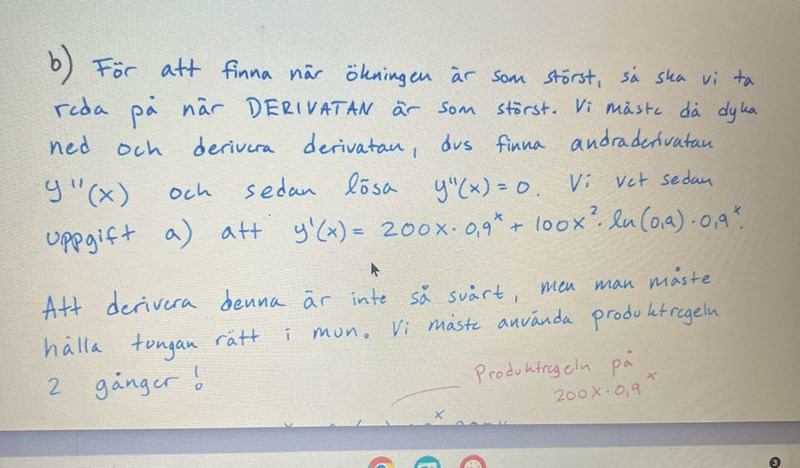 b) För att finna när ökningen är som störst, så ska vi ta
reda på när DERIVATAN är som störst. Vi måste då dyka
ned och derivera derivatan, dvs finna andraderivatan
y''(x) och sedan lösa y''(x) = 0. Vi vet sedan
uppgift a) att y'(x) = 200x · 0,9^x + 100x². ln(0,9) · 0,9^x.
Att derivera denna är inte så svårt, men man måste
hålla tungan rätt i mun. Vi måste använda produktregeln
2 gånger!
Produktregeln på
200x · 0,9^x